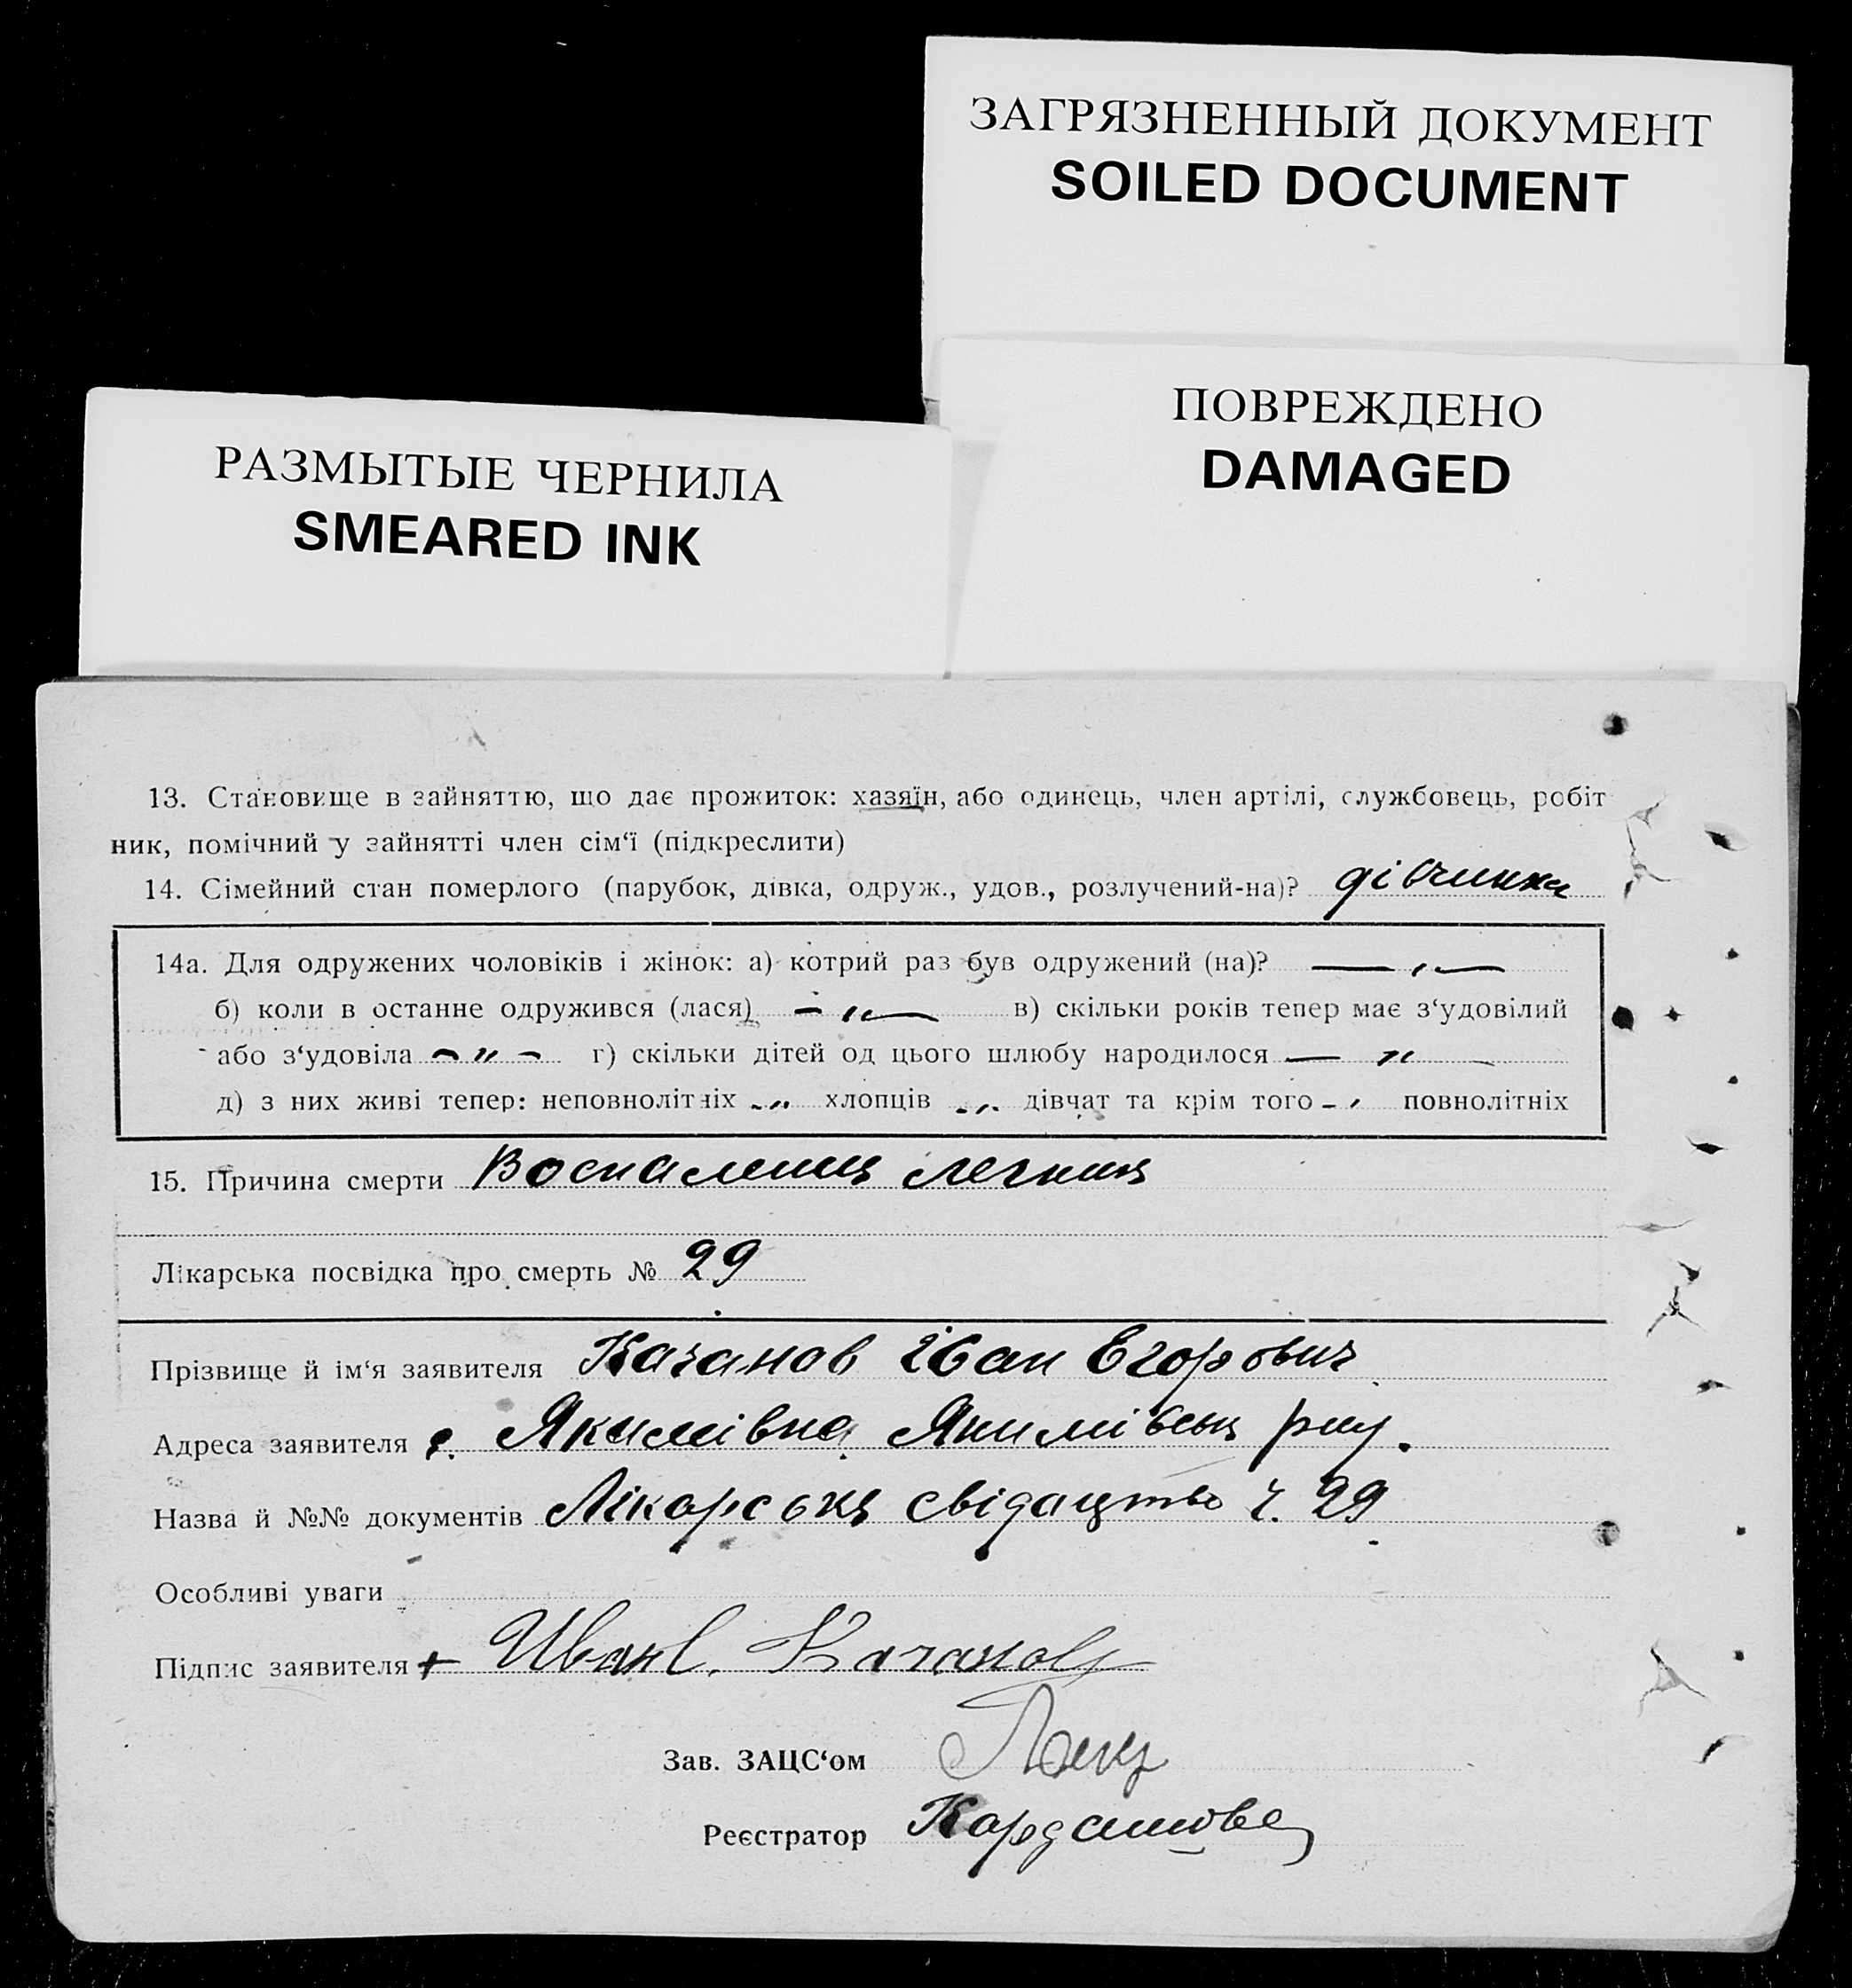 ЗАГРЯЗНЕННЫЙ ДОКУМЕНТ
SOILED DOCUMENT
ПОВРЕЖДЕНО
DAMAGED
РАЗМЫТЫЕ ЧЕРНИЛА
SMEARED INK
13. Становище в зайняттю, що дає прожиток: хазяїн, або одинець, член артілі, службовець, робіт
ник, помічний у зайнятті член сім‘ї (підкреслити)
14. Сімейний стан померлого (парубок, дівка, одруж., удов., розлучений-на)? дівчинка
14а. Для одружених чоловіків і жінок: а) котрий раз був одружений (на)? — „ —
б) коли в останне одружився (лася) — „ — в) скільки років тепер має з‘удовілий
або з‘удовіла — „ — г) скільки дітей од цього шлюбу народилося — „
д) з них живі тепер: неповнолітніх - „ хлопців - „ дівчат та крім того - „ повнолітніх
15. Причина смерти Воспаления легких
Лікарська посвідка про смерть № 29
Прізвище й ім‘я заявителя Качанов Іван Егорович
Адреса заявителя с. Якимівка Якимівськ рну.
Назва й №№ документів Лікарська свідоцтво ч. 29
Особливі уваги
Підпис заявителя + Иван Качанов
Зав. ЗАЦС‘ом
Реєстратор Кардашова